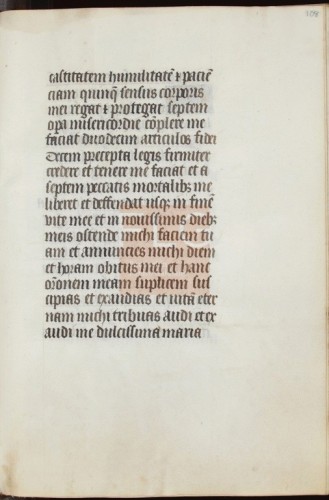 castitatem humilitatē ⁊ paciē
ciam quinqȝ sensus corporis
mei regat ⁊ protegat septem
opa misericordie cōplere me
faciat duodecim articulos fidei
Decem precepta legis firmiter
credere et tenere me faciat et a
septem peccatis mortalibȝ me
liberet et deffendat usqȝ in finē
vite mee et in nouissimis diebȝ
meis ostende michi faciem tu
am et annuncies michi diem
et horam obitus mei et hanc
orōnem meam suplicem sus
cipias et exaudias et uitā eter
nam michi tribuas audi et ex
audi me dulcissima maria